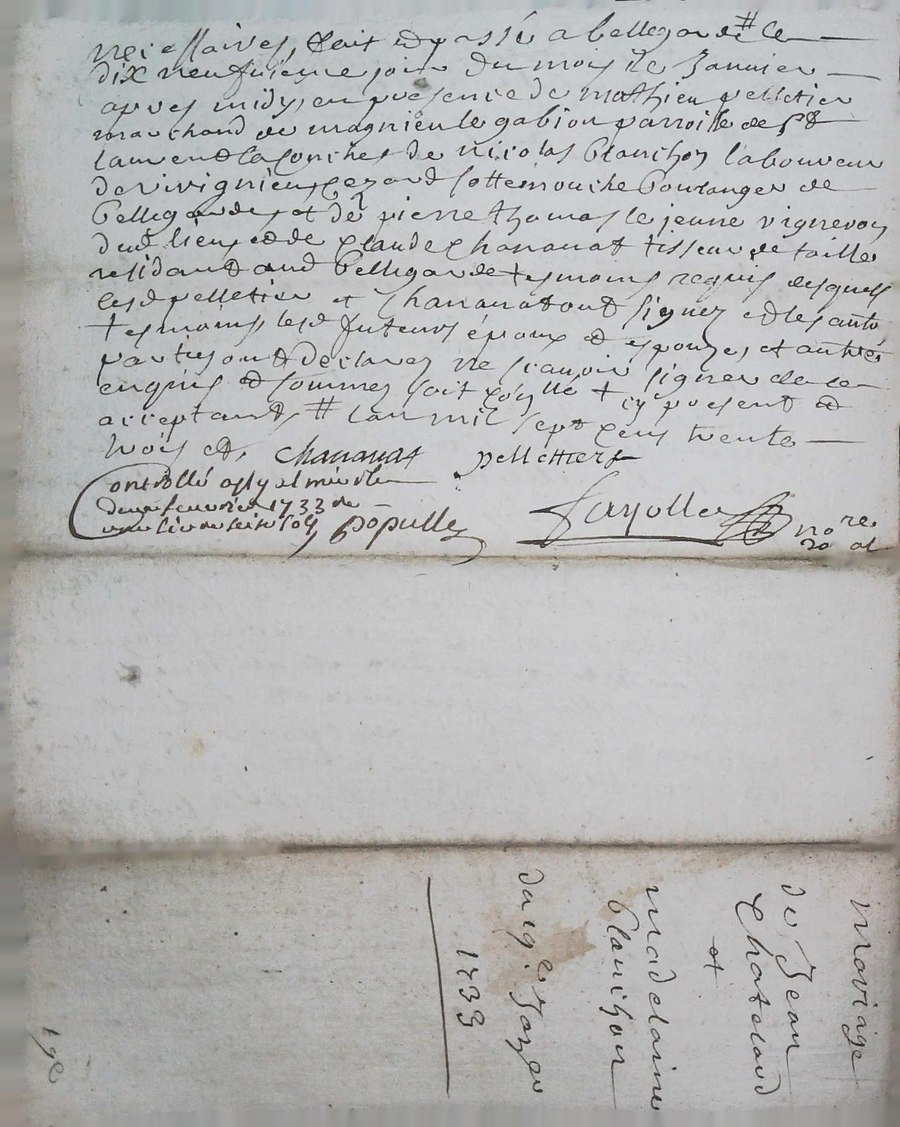 necessaires, fait et passé a bellegarde # le
dix neufvieme jour du mois de Janvier
apres midy, en presence de mathieu pelletier
marchand de magnieu le gabion parroisse de st
laurend la conche et de nicolas blanchon laboureur
de vivignieu gerard sottemouche boulanger de
bellegarde et de pierre thomas le jeune vigneron
dud lieu et de claude chananat tisseur de taille
residant aud bellegarde tesmoins requis desquels
lesd pelletier et chananat ont signez et les autr
tesmoins lesd futeurs époux et espouze, et autres
parties ont declarez ne sçavoir signer de ce
enquis et sommez soit + cy present et
acceptant, # lan mil sept cens trente
trois et, chananat pelletier
Controllé a le
deux fevrier 1733
une livre seize sols populle
fayolle nore
ral
mariage
de Jean
Chatelard
et
madelaine
blanchon
du 19e Janver
1733